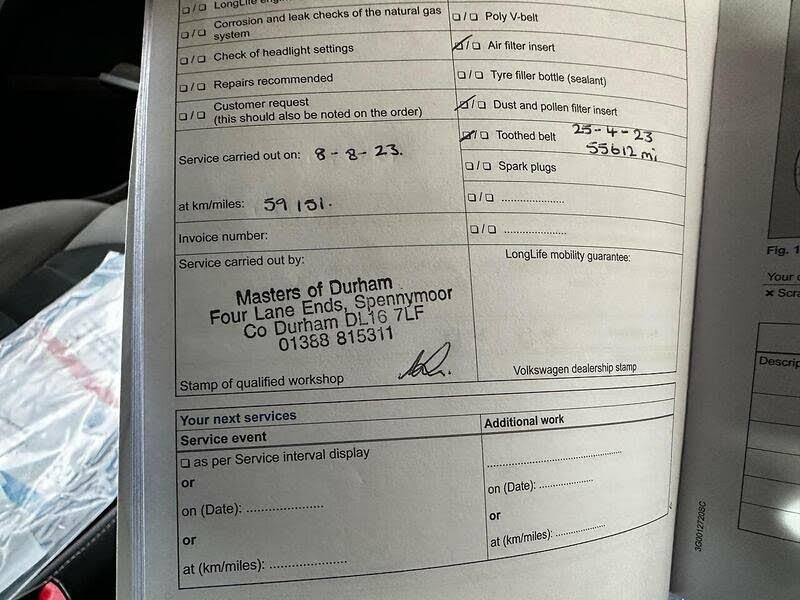 ❏ / ❏ LongLife
❏ / ❏ Corrosion and leak checks of the natural gas
system
❏ / ❏ Check of headlight settings
❏ / ❏ Repairs recommended
❏ / ❏ Customer request
(this should also be noted on the order)
Service carried out on: 8 - 8 - 23.
at km/miles: 59 151.
Invoice number:
Service carried out by:
Masters of Durham
Four Lane Ends, Spennymoor
Co Durham DL16 7LF
01388 815311
Stamp of qualified workshop
❏ / ❏ Poly V-belt
❏ / ❏ Air filter insert
❏ / ❏ Tyre filler bottle (sealant)
❏ / ❏ Dust and pollen filter insert
❏ / ❏ Toothed belt 25-4-23
55612 mi
❏ / ❏ Spark plugs
❏ / ❏ ....................
❏ / ❏ ....................
LongLife mobility guarantee:
Volkswagen dealership stamp
Your next services
Service event
❏ as per Service interval display
or
on (Date): ....................
or
at (km/miles): ....................
Additional work
..................................
on (Date): ..............
or
at (km/miles): .............
3G0012720SC
Fig. 1
Your
× Scra
Descrip